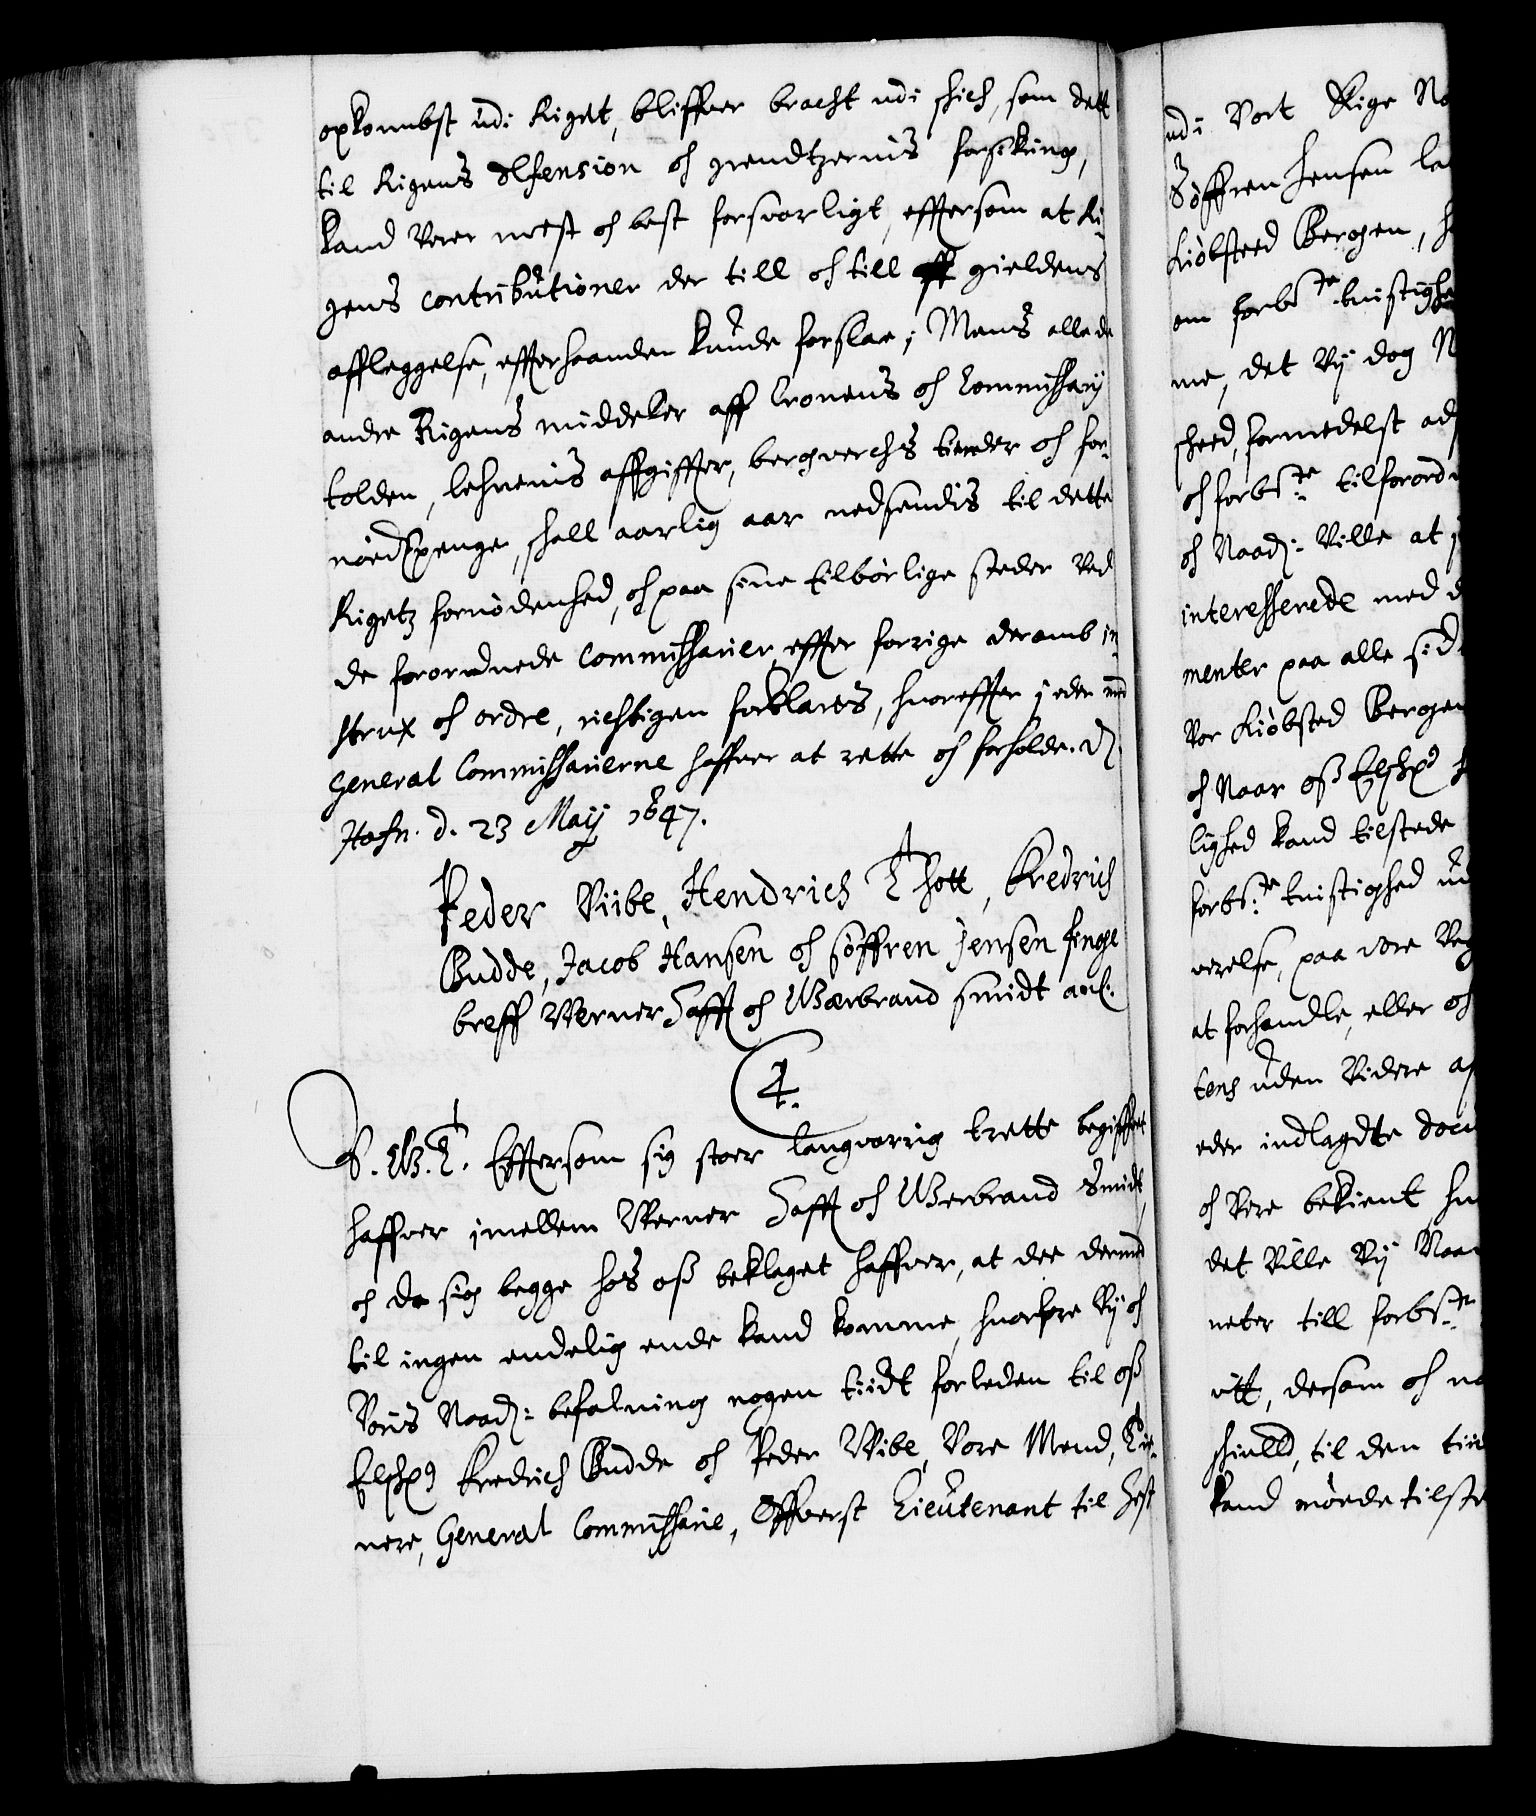 opkombst udi Riget, bliffuer bracht udi skich, som dett
til Rigens defension och grendtzernis forsikring,
kand were meest och best forsvarligt, efftersom at Ri-
gens contributioner der till och till gieldens
affleggelse, effterhaanden kunde forslae; Mens alle de
andre Rigens middeler aff Cronens och Commissarij
tolden, lehnenis affgiffter, bergverchs tiender och for-
nøedspenge, skall aarlig aar nedsendis til dette
Rigets fornødenhed, och paa sine tilbørlige steder ved
de forordnede Commissarier effter forrige deromb in-
strux och ordre, richtigen forklares, huoreffter j eder med
General Commissarierne haffuer at rette och forholde. D.
Hafn. d. 23 Maij 1647.
Peder Viibe, Hendrich Thott, Fredrich
Budde, Jacob Hansen och Søffren Jensen finge
breff Werner Safft och Wærbrand Smidt anl.
4.
C. 4. T. Effersom sig stoer langvarrig trette begiffuet
haffuer jmellem Werner Safft och Werbrand Smidt,
och de sig begge hos oss beklaget haffuer, at dee dermed
til ingen endelig ende kand komme, huorfore Vij och
Voris Naad: befalning nogen tiidt forleden til oss
Elsch: Fredrich Budde och Peder Wibe, Vore Mend, Tie-
nere, General Commissarie, Offuerst Lieutenant til Hest
udi Vort Rige No
Søffren Jensen
Kiøbsteed Bergen,
om forbte tuistighe
me, det Vij dog
skeed, formedelst
och forbte tilforord
och Naad: Ville at
interesserede med
menter paa alle sid
Vor Kiøbsted Bergen
och Naar oss Elsch:
lighed kand tilstede
forbte tuistighed ud
verelse, paa vore Veg
at forhandle, eller och
tens uden Videre
eder indlagdte docu
och Vere bekient,
det Ville Vij Naa
neter till forbte
itt, dersom och
skiulld, til den tiid
kand møede tilst